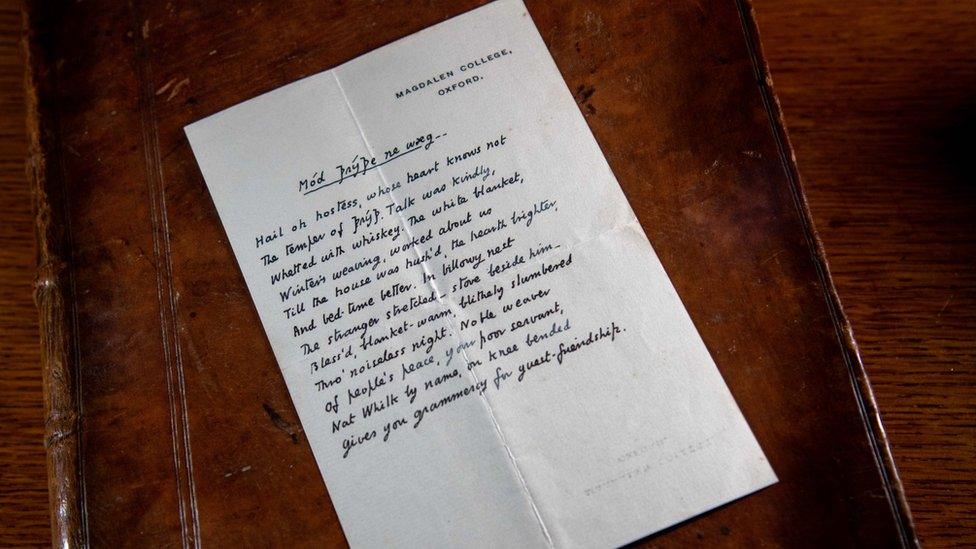 MAGDALEN COLLEGE,
OXFORD.
Mód þrýþe ne wæg--
Hail oh hostess, whose heart knows not
The temper of þrýþ. Talk was kindly,
Whetted with whiskey. The white blanket,
Winter's weaving, worked about us
Till the house was hush'd, the hearth brighter,
And bed-time better. In billowy nest
The stranger stretched – stove beside him –
Bless'd, blanket-warm, blithely slumbered
Thro' noiseless night. Noble weaver
Of people's peace, your poor servant,
Nat Whilk by name, on knee bended
gives you grammercy for guest-friendship.